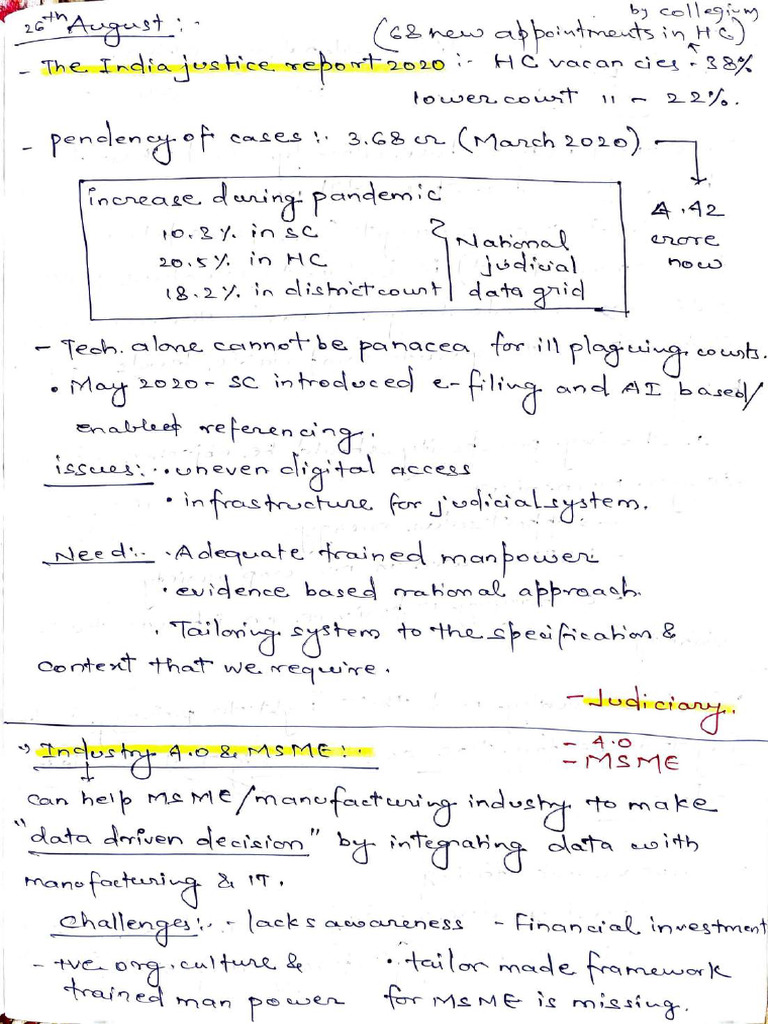 26th August :-
by collegium
(68 new appointments in HC)
- The India justice report 2020 :- HC vacancies - 38%
lower court " - 22%.
- pendency of cases :- 3.68 cr (March 2020)
4.42 crore now
increase during pandemic
10.3% in SC
20.5% in HC
18.2% in district court
National judicial data grid
- Tech. alone cannot be panacea for ill plaguing courts.
• May 2020 - SC introduced e-filing and AI based/
enabled referencing.
issues:- • uneven digital access
• infrastructure for judicial system.
Need:- • Adequate trained manpower
• evidence based rational approach.
• Tailoring system to the specification &
context that we require.
- Judiciary.
- 4.0
- MSME
Industry 4.0 & MSME :-
can help MSME/manufacturing industry to make
"data driven decision" by integrating data with
manufacturing & IT.
Challenges:- - lacks awareness - Financial investment
- +ve org. culture & • tailor made framework
trained man power for MSME is missing.